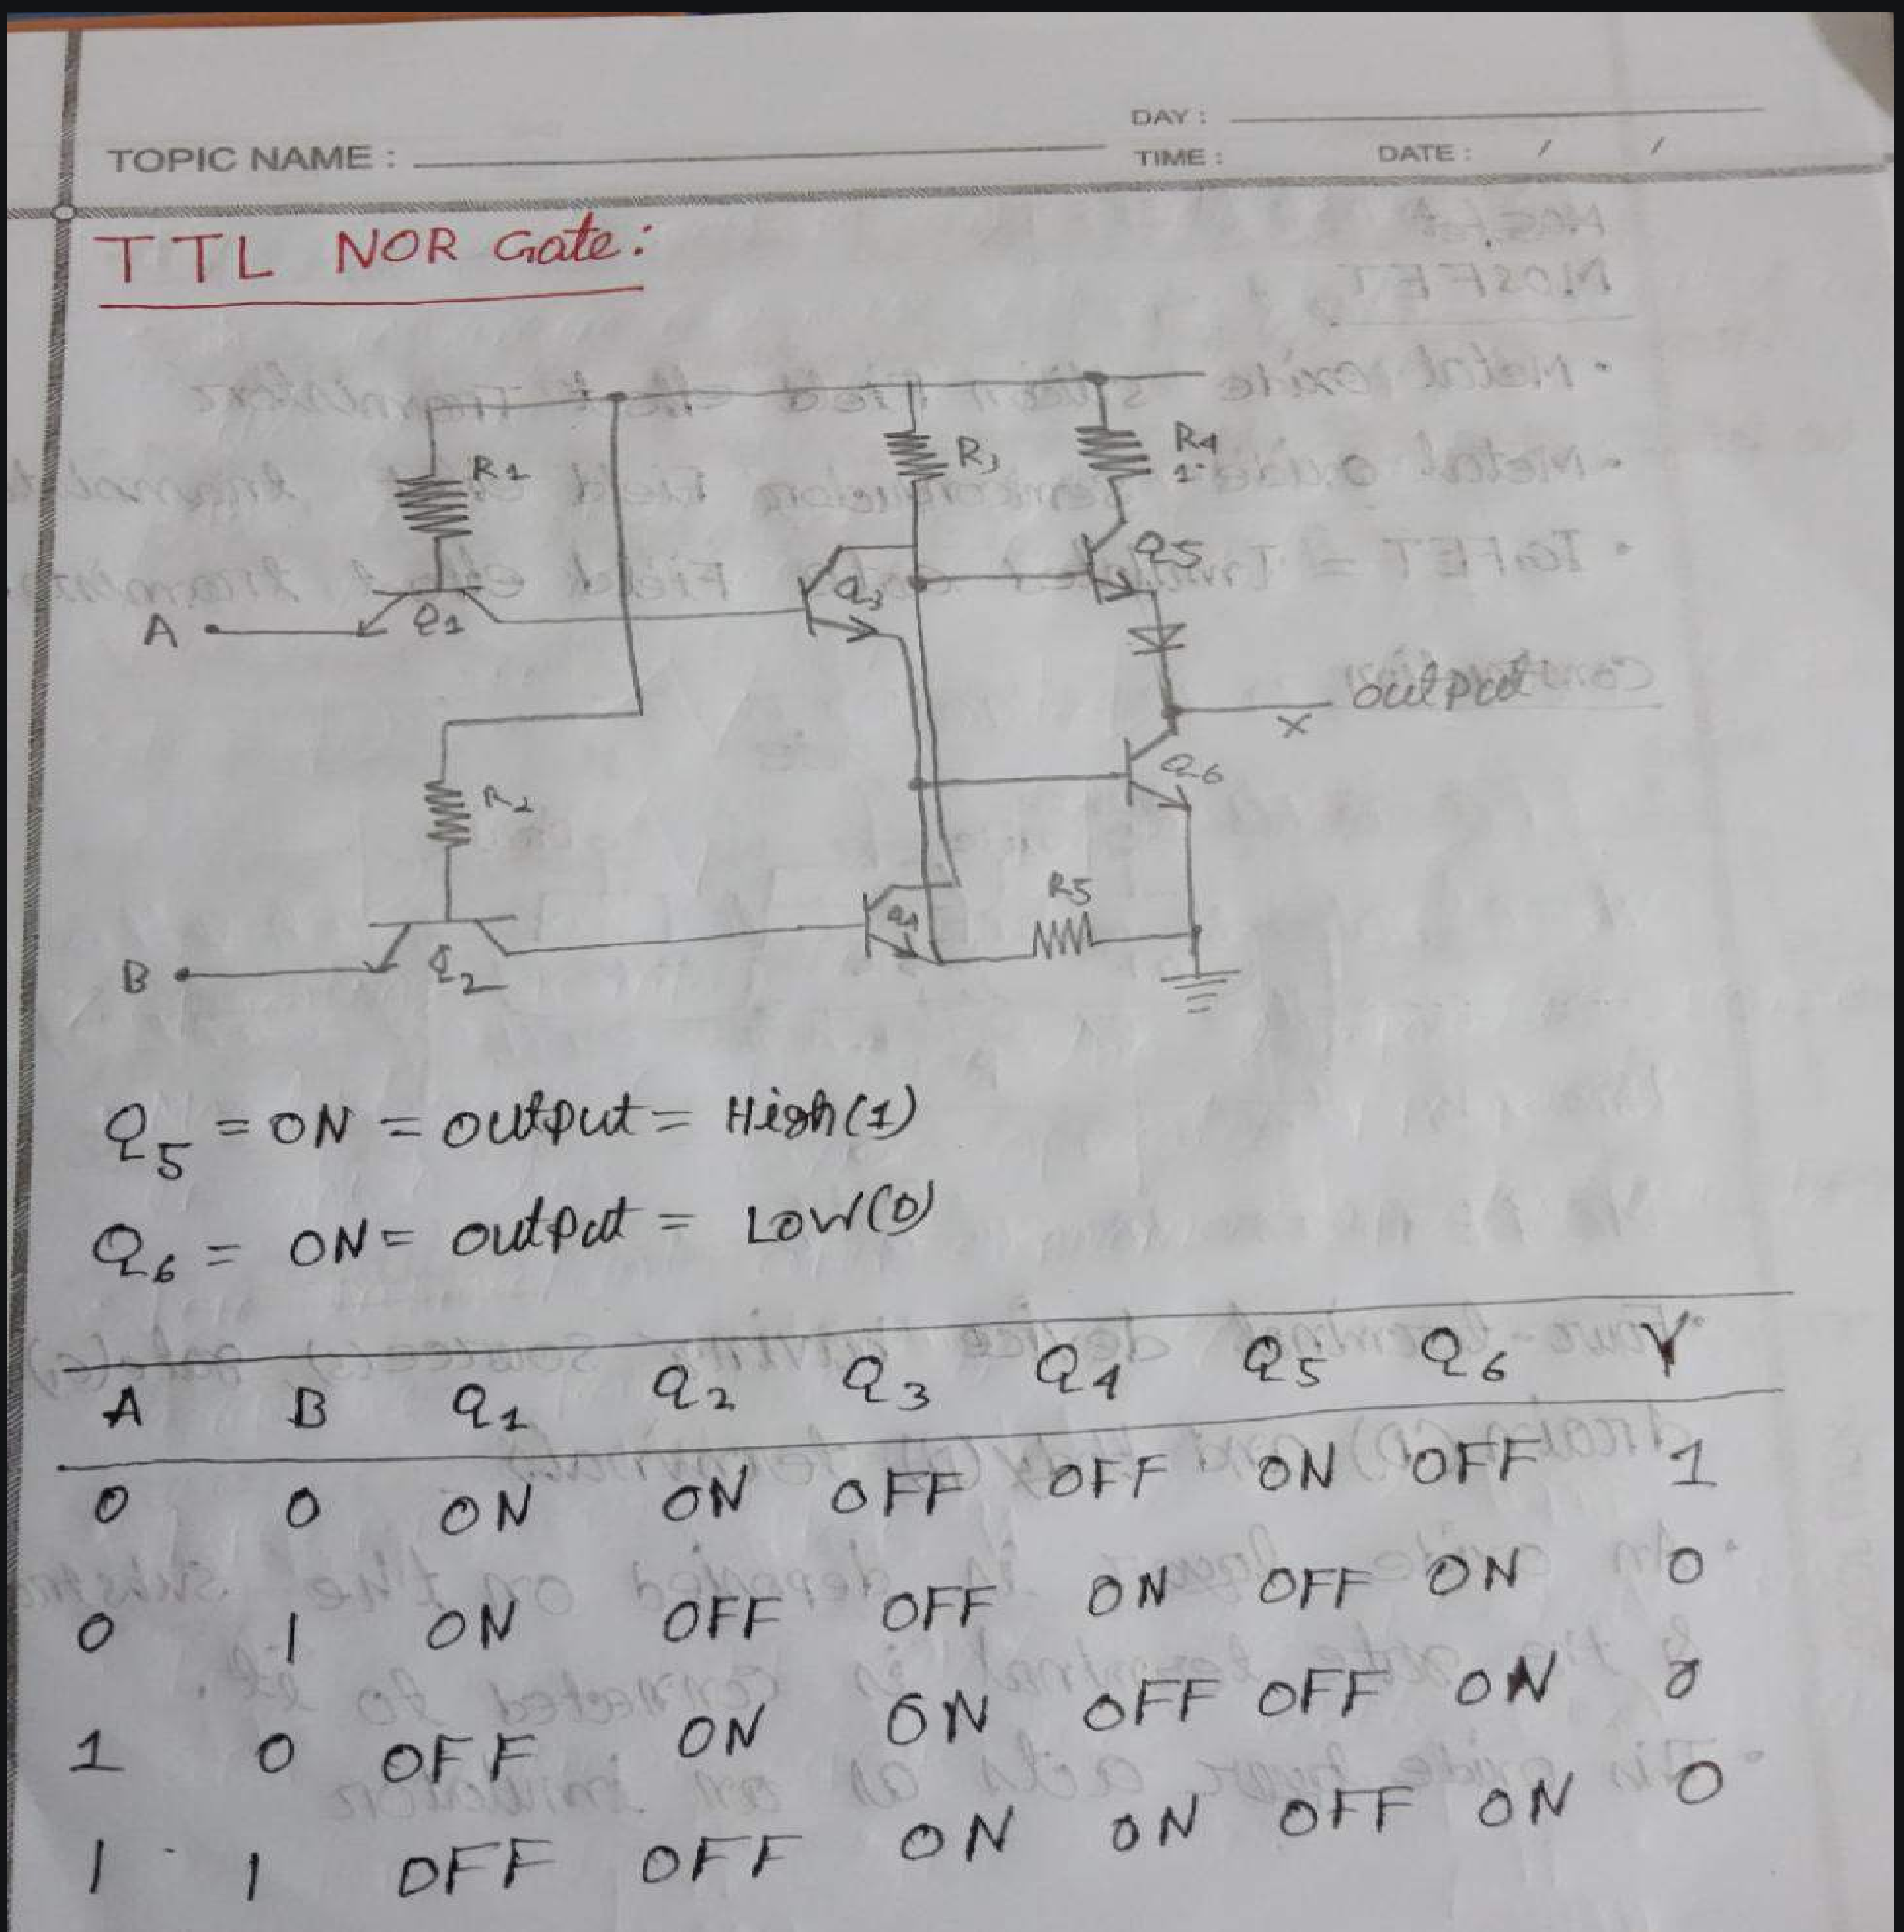 DAY :
TOPIC NAME :
TIME : DATE : / /
TTL NOR Gate:
R1
R3
R4
Q5
A
Q1
Q3
output
X
Q6
R2
R5
Q4
B
Q2
Q5 = ON = output = High(1)
Q6 = ON = output = LOW(0)
A B Q1 Q2 Q3 Q4 Q5 Q6 Y
0 0 ON ON OFF OFF ON OFF 1
0 1 ON OFF OFF ON OFF ON 0
1 0 OFF ON ON OFF OFF ON 0
1 1 OFF OFF ON ON OFF ON 0